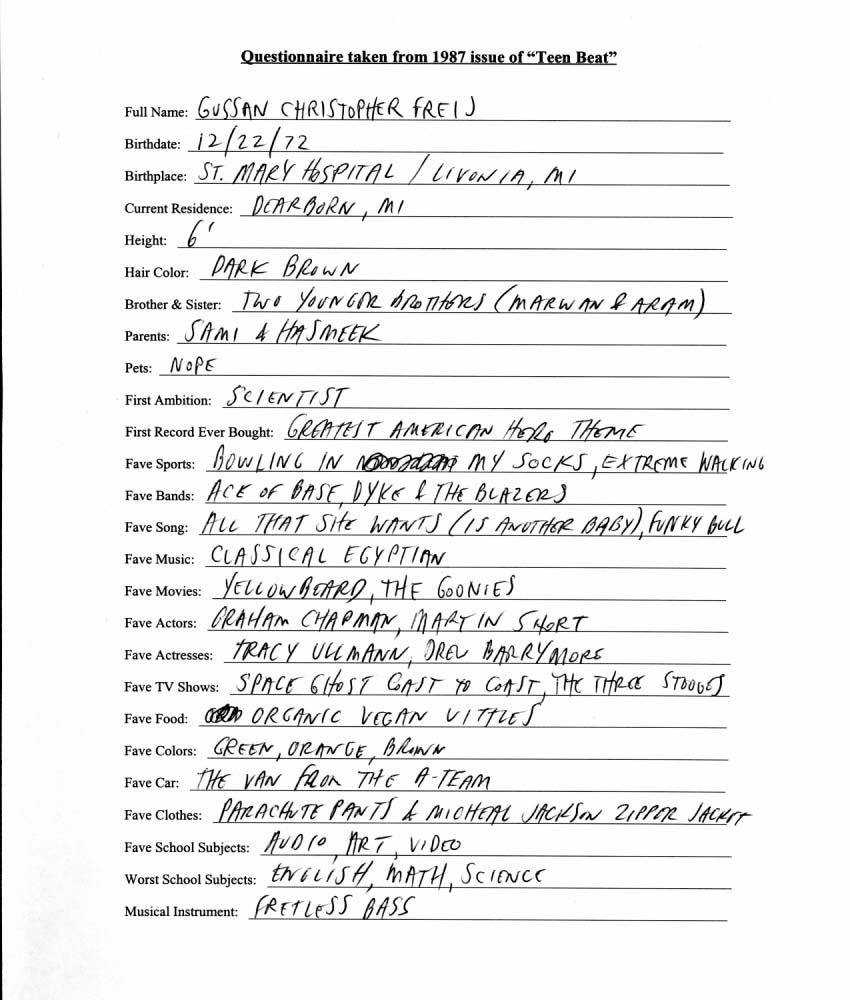 Questionnaire taken from 1987 issue of “Teen Beat”
Full Name: GUSSAN CHRISTOPHER FREIJ
Birthdate: 12/22/72
Birthplace: ST. MARY HOSPITAL / LIVONIA, MI
Current Residence: DEARBORN, MI
Height: 6'
Hair Color: DARK BROWN
Brother & Sister: TWO YOUNGER BROTHERS (MARWAN & ARAM)
Parents: SAMI & HASMEEK
Pets: NOPE
First Ambition: SCIENTIST
First Record Ever Bought: GREATEST AMERICAN HERO THEME
Fave Sports: BOWLING IN MY SOCKS, EXTREME WALKING
Fave Bands: ACE OF BASE, DYKE & THE BLAZERS
Fave Song: ALL THAT SHE WANTS (IS ANOTHER BABY), FUNKY BULL
Fave Music: CLASSICAL EGYPTIAN
Fave Movies: YELLOWBEARD, THE GOONIES
Fave Actors: GRAHAM CHAPMAN, MARTIN SHORT
Fave Actresses: TRACY ULLMANN, DREW BARRYMORE
Fave TV Shows: SPACE GHOST COAST TO COAST, THE THREE STOOGES
Fave Food: ORGANIC VEGAN VITTLES
Fave Colors: GREEN, ORANGE, BROWN
Fave Car: THE VAN FROM THE A-TEAM
Fave Clothes: PARACHUTE PANTS & MICHEAL JACKSON ZIPPER JACKET
Fave School Subjects: AUDIO, ART, VIDEO
Worst School Subjects: ENGLISH, MATH, SCIENCE
Musical Instrument: FRETLESS BASS